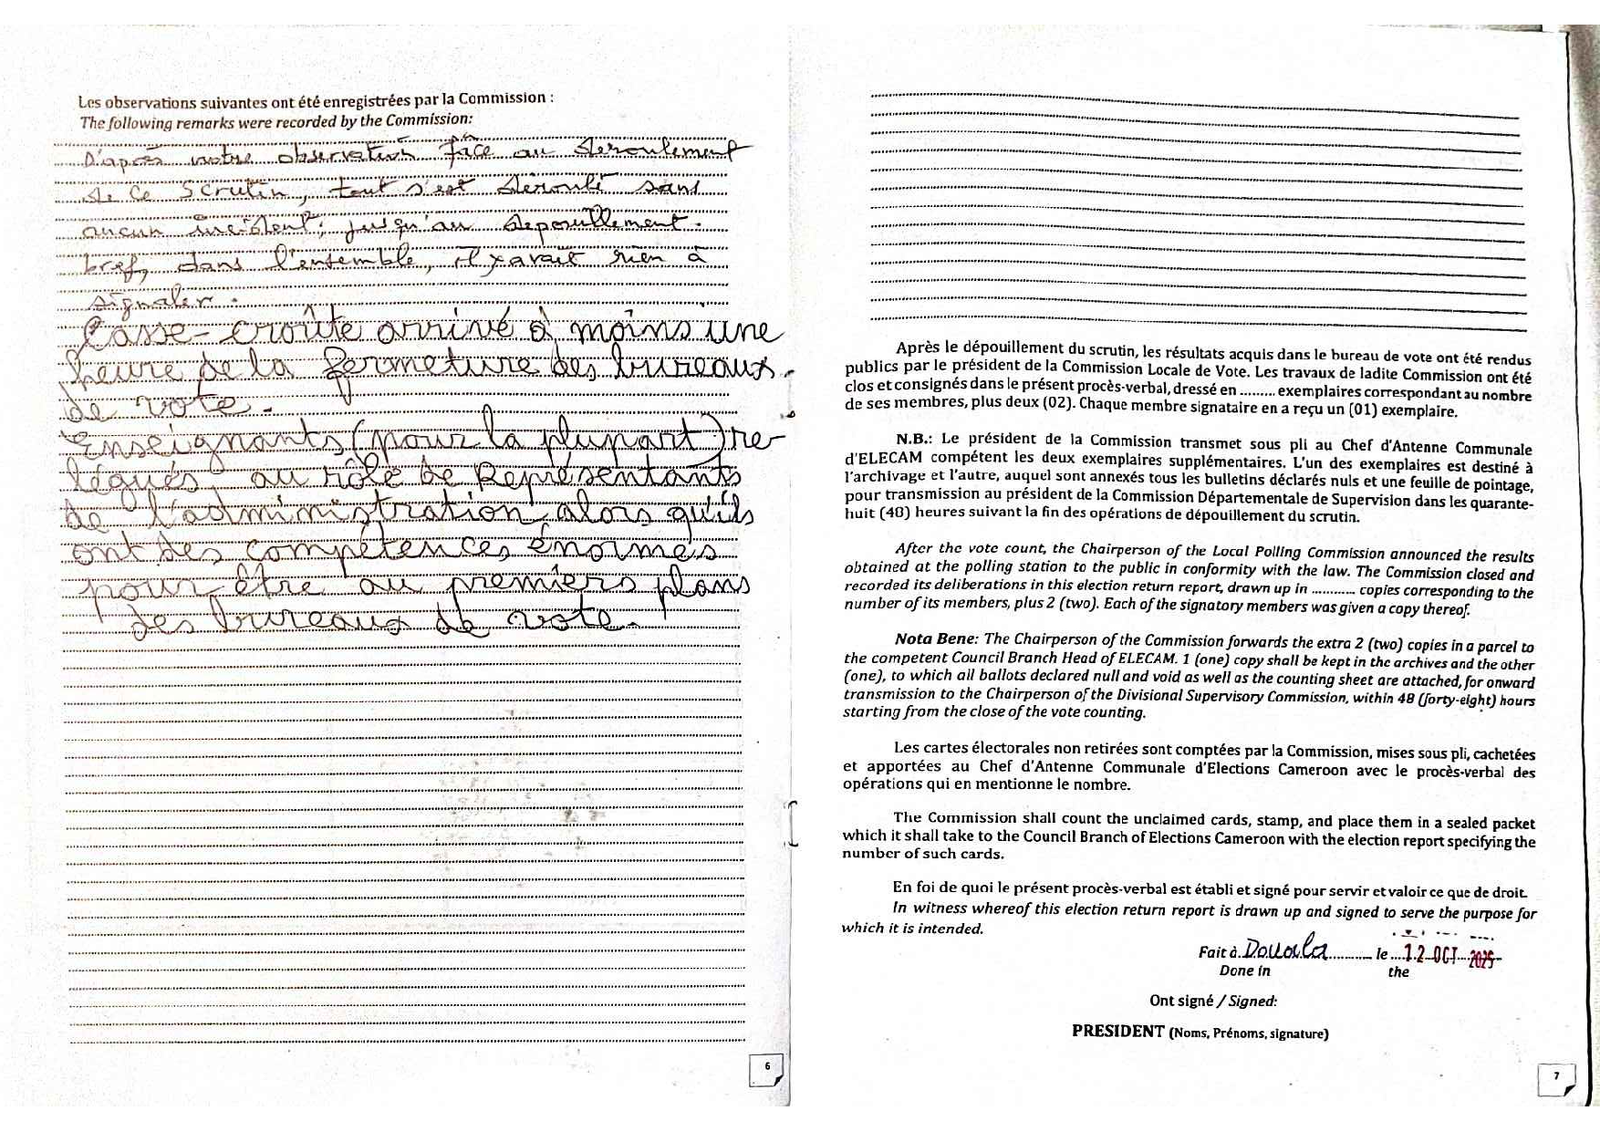 Les observations suivantes ont été enregistrées par la Commission :
The following remarks were recorded by the Commission:
D'après notre observation face au deroulement
de ce scrutin, tout s'est déroulé sans
aucun incident, jusqu'au depouillement.
bref, dans l'ensemble, il y avait rien à
signaler.
Casse-croûte arrivé à moins une
heure de la fermeture des bureaux
de vote.
Enseignants (pour la plupart) re-
légués au rôle de Représentants
de l'administration, alors qu'ils
ont des compétences énormes
pour être au premiers plans
des bureaux de vote.
6
Après le dépouillement du scrutin, les résultats acquis dans le bureau de vote ont été rendus
publics par le président de la Commission Locale de Vote. Les travaux de ladite Commission ont été
clos et consignés dans le présent procès-verbal, dressé en ......... exemplaires correspondant au nombre
de ses membres, plus deux (02). Chaque membre signataire en a reçu un (01) exemplaire.
N.B.: Le président de la Commission transmet sous pli au Chef d'Antenne Communale
d'ELECAM compétent les deux exemplaires supplémentaires. L'un des exemplaires est destiné à
l'archivage et l'autre, auquel sont annexés tous les bulletins déclarés nuls et une feuille de pointage,
pour transmission au président de la Commission Départementale de Supervision dans les quarante-
huit (48) heures suivant la fin des opérations de dépouillement du scrutin.
After the vote count, the Chairperson of the Local Polling Commission announced the results
obtained at the polling station to the public in conformity with the law. The Commission closed and
recorded its deliberations in this election return report, drawn up in ........... copies corresponding to the
number of its members, plus 2 (two). Each of the signatory members was given a copy thereof.
Nota Bene: The Chairperson of the Commission forwards the extra 2 (two) copies in a parcel to
the competent Council Branch Head of ELECAM. 1 (one) copy shall be kept in the archives and the other
(one), to which all ballots declared null and void as well as the counting sheet are attached, for onward
transmission to the Chairperson of the Divisional Supervisory Commission, within 48 (forty-eight) hours
starting from the close of the vote counting.
Les cartes électorales non retirées sont comptées par la Commission, mises sous pli, cachetées
et apportées au Chef d'Antenne Communale d'Elections Cameroon avec le procès-verbal des
opérations qui en mentionne le nombre.
The Commission shall count the unclaimed cards, stamp, and place them in a sealed packet
which it shall take to the Council Branch of Elections Cameroon with the election report specifying the
number of such cards.
En foi de quoi le présent procès-verbal est établi et signé pour servir et valoir ce que de droit.
In witness whereof this election return report is drawn up and signed to serve the purpose for
which it is intended.
Fait à Douala .......... le 12 OCT 2025
Done in the
Ont signé / Signed:
PRESIDENT (Noms, Prénoms, signature)
7